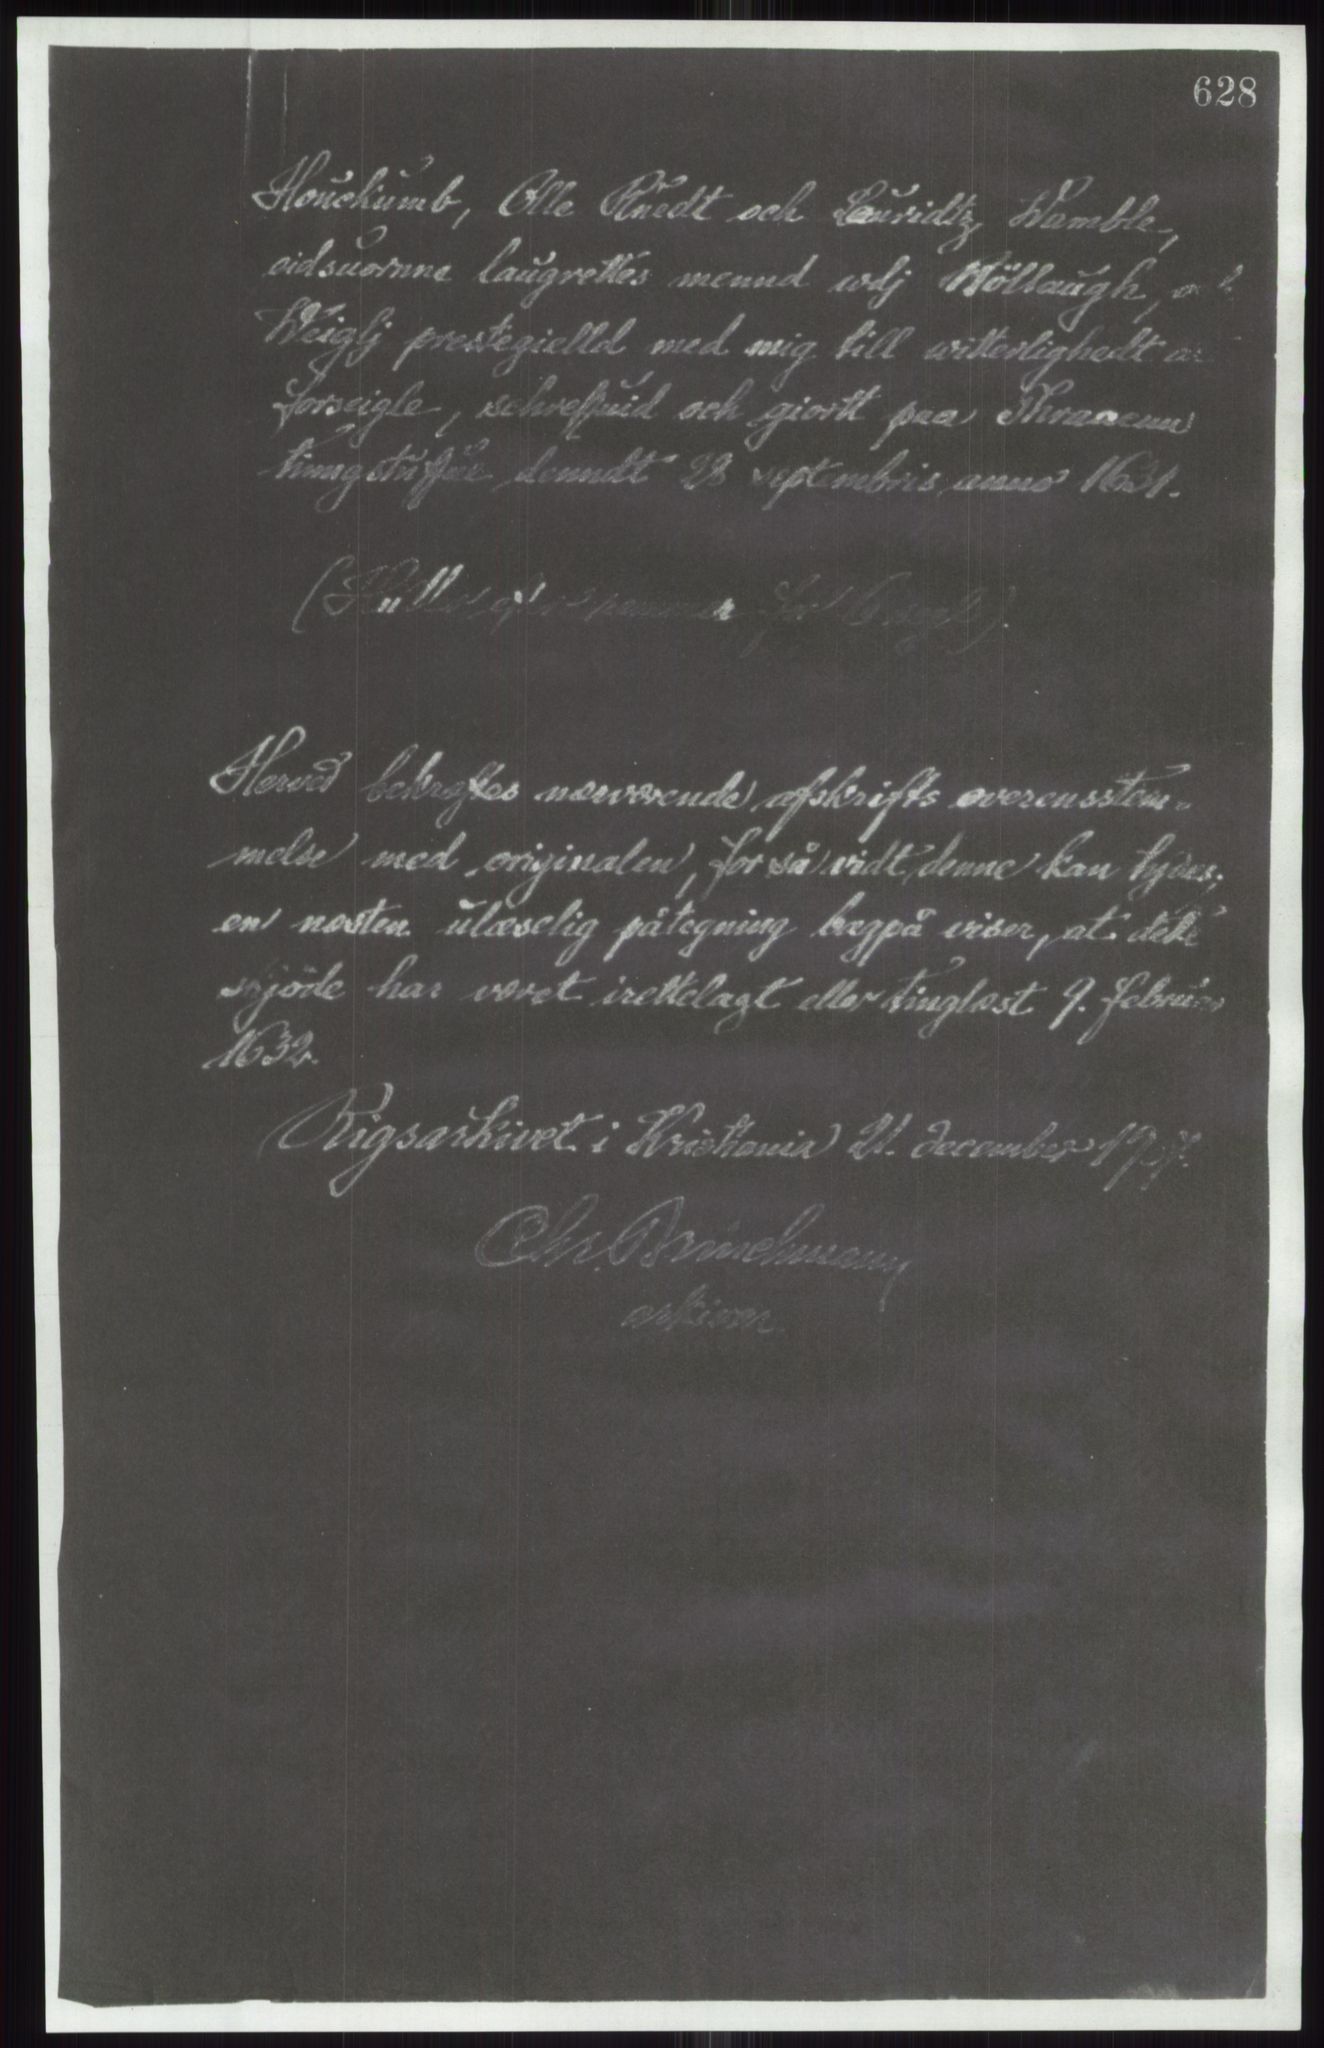 628
Houckumb, Olle Ruedt och Lauridtz Wamble,
eidsuornne laugrettes mennd wdj Wöllaugh,
Weiglj prestegielld med mig till witterlighedt
forseigle, schreffuid och giortt paa Thraaenn
tinngstuffue denndt 28 septembris anno 1631.
(Huller efter remmer for 6 segl).
Herved bekræftes nærværende afskrifts overensstem-
melse med originalen, for så vidt denne kan tydes;
en næsten ulæselig påtegning bagpå viser, at dette
skjöde har været irettelagt eller tinglæst 9. februar
1632.
Rigsarkivet i Kristiania 21. december
Chr. Brinchmann
arkivar.